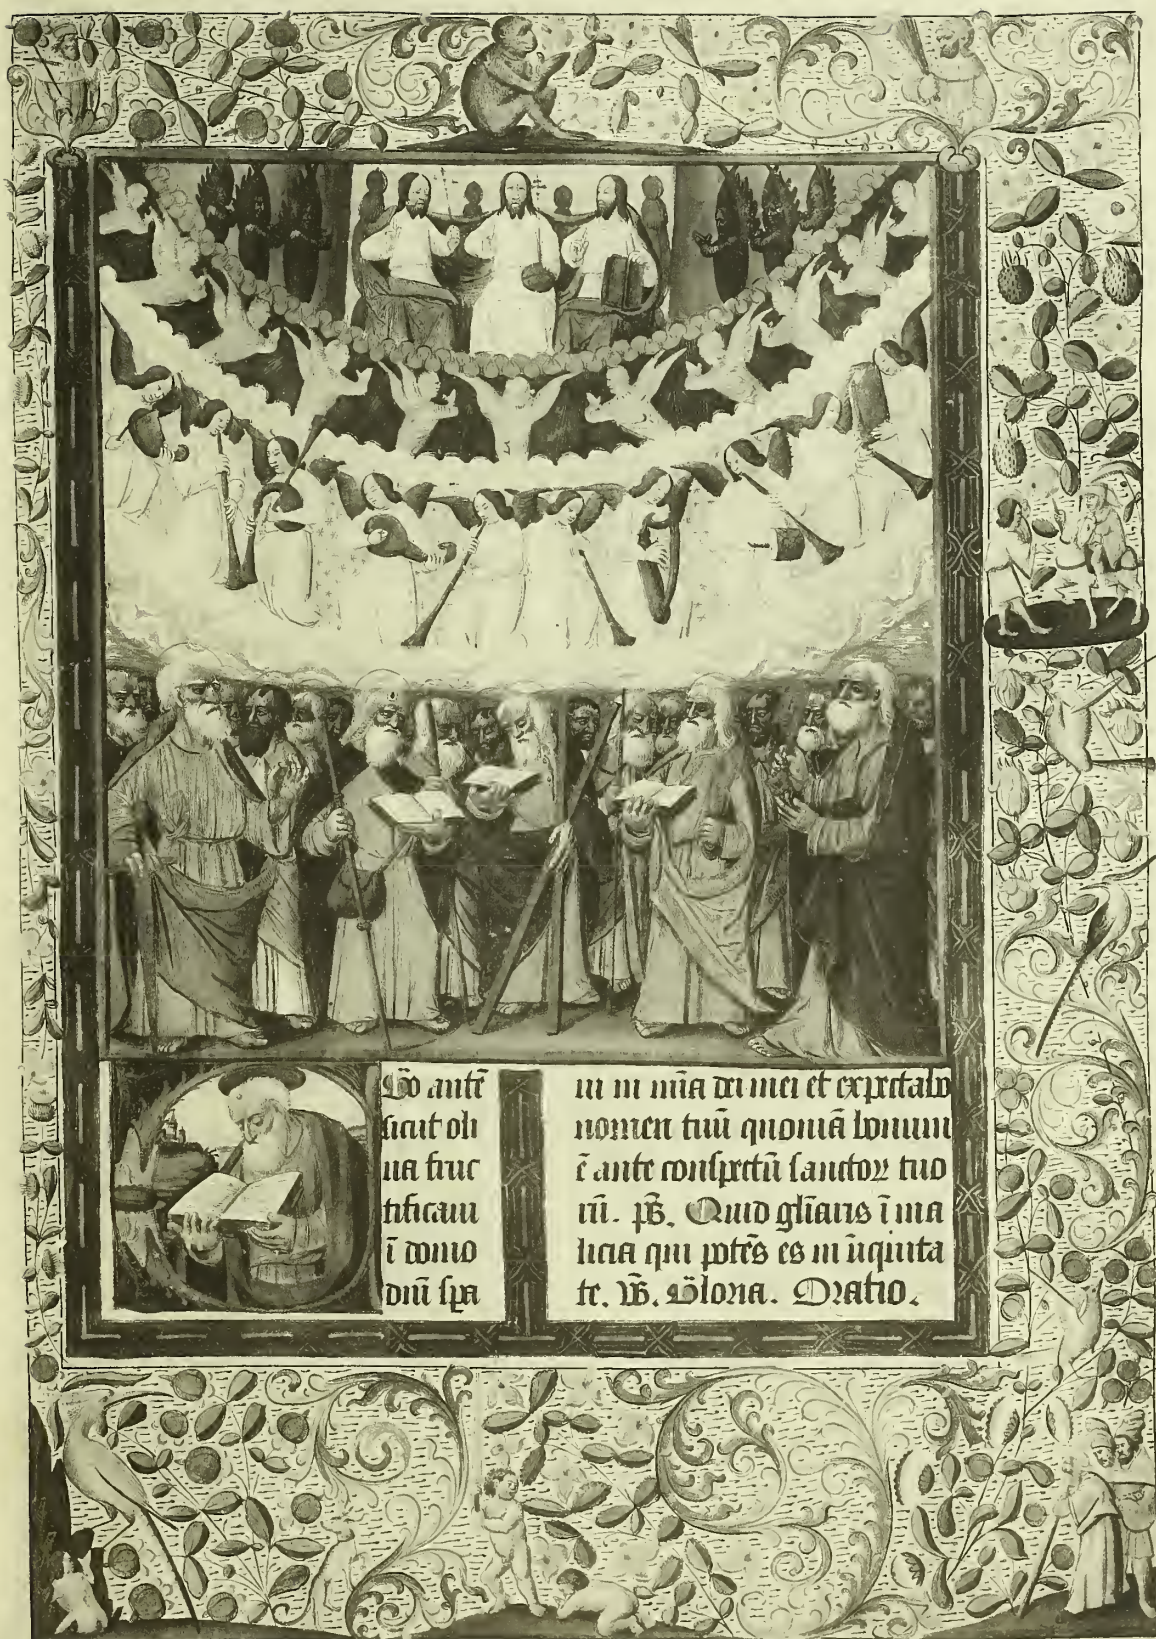 EGo autē
sicut oli
ua fruc
tificaui
ī domo
dnī spa
ui in mīa dei mei et expectabo
nomen tuū quoniā bonum
ē ante conspectū sanctoꝝ tuo
rū. ps̄. Quid glīaris ī ma
licia qui potēs es in iīquita
te. V̄s. Gloria. Oratio.